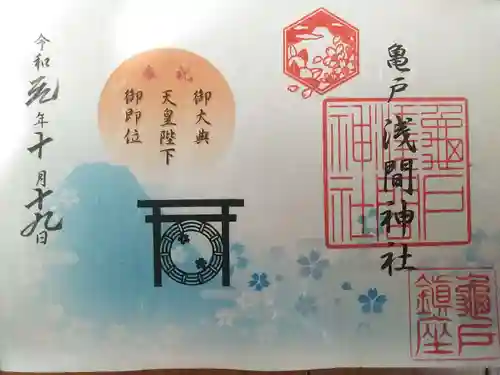 亀戸浅間神社
龜戸浅間神社
龜戸鎮座
奉祝
天皇陛下御即位
御大典
令和元年十月十九日